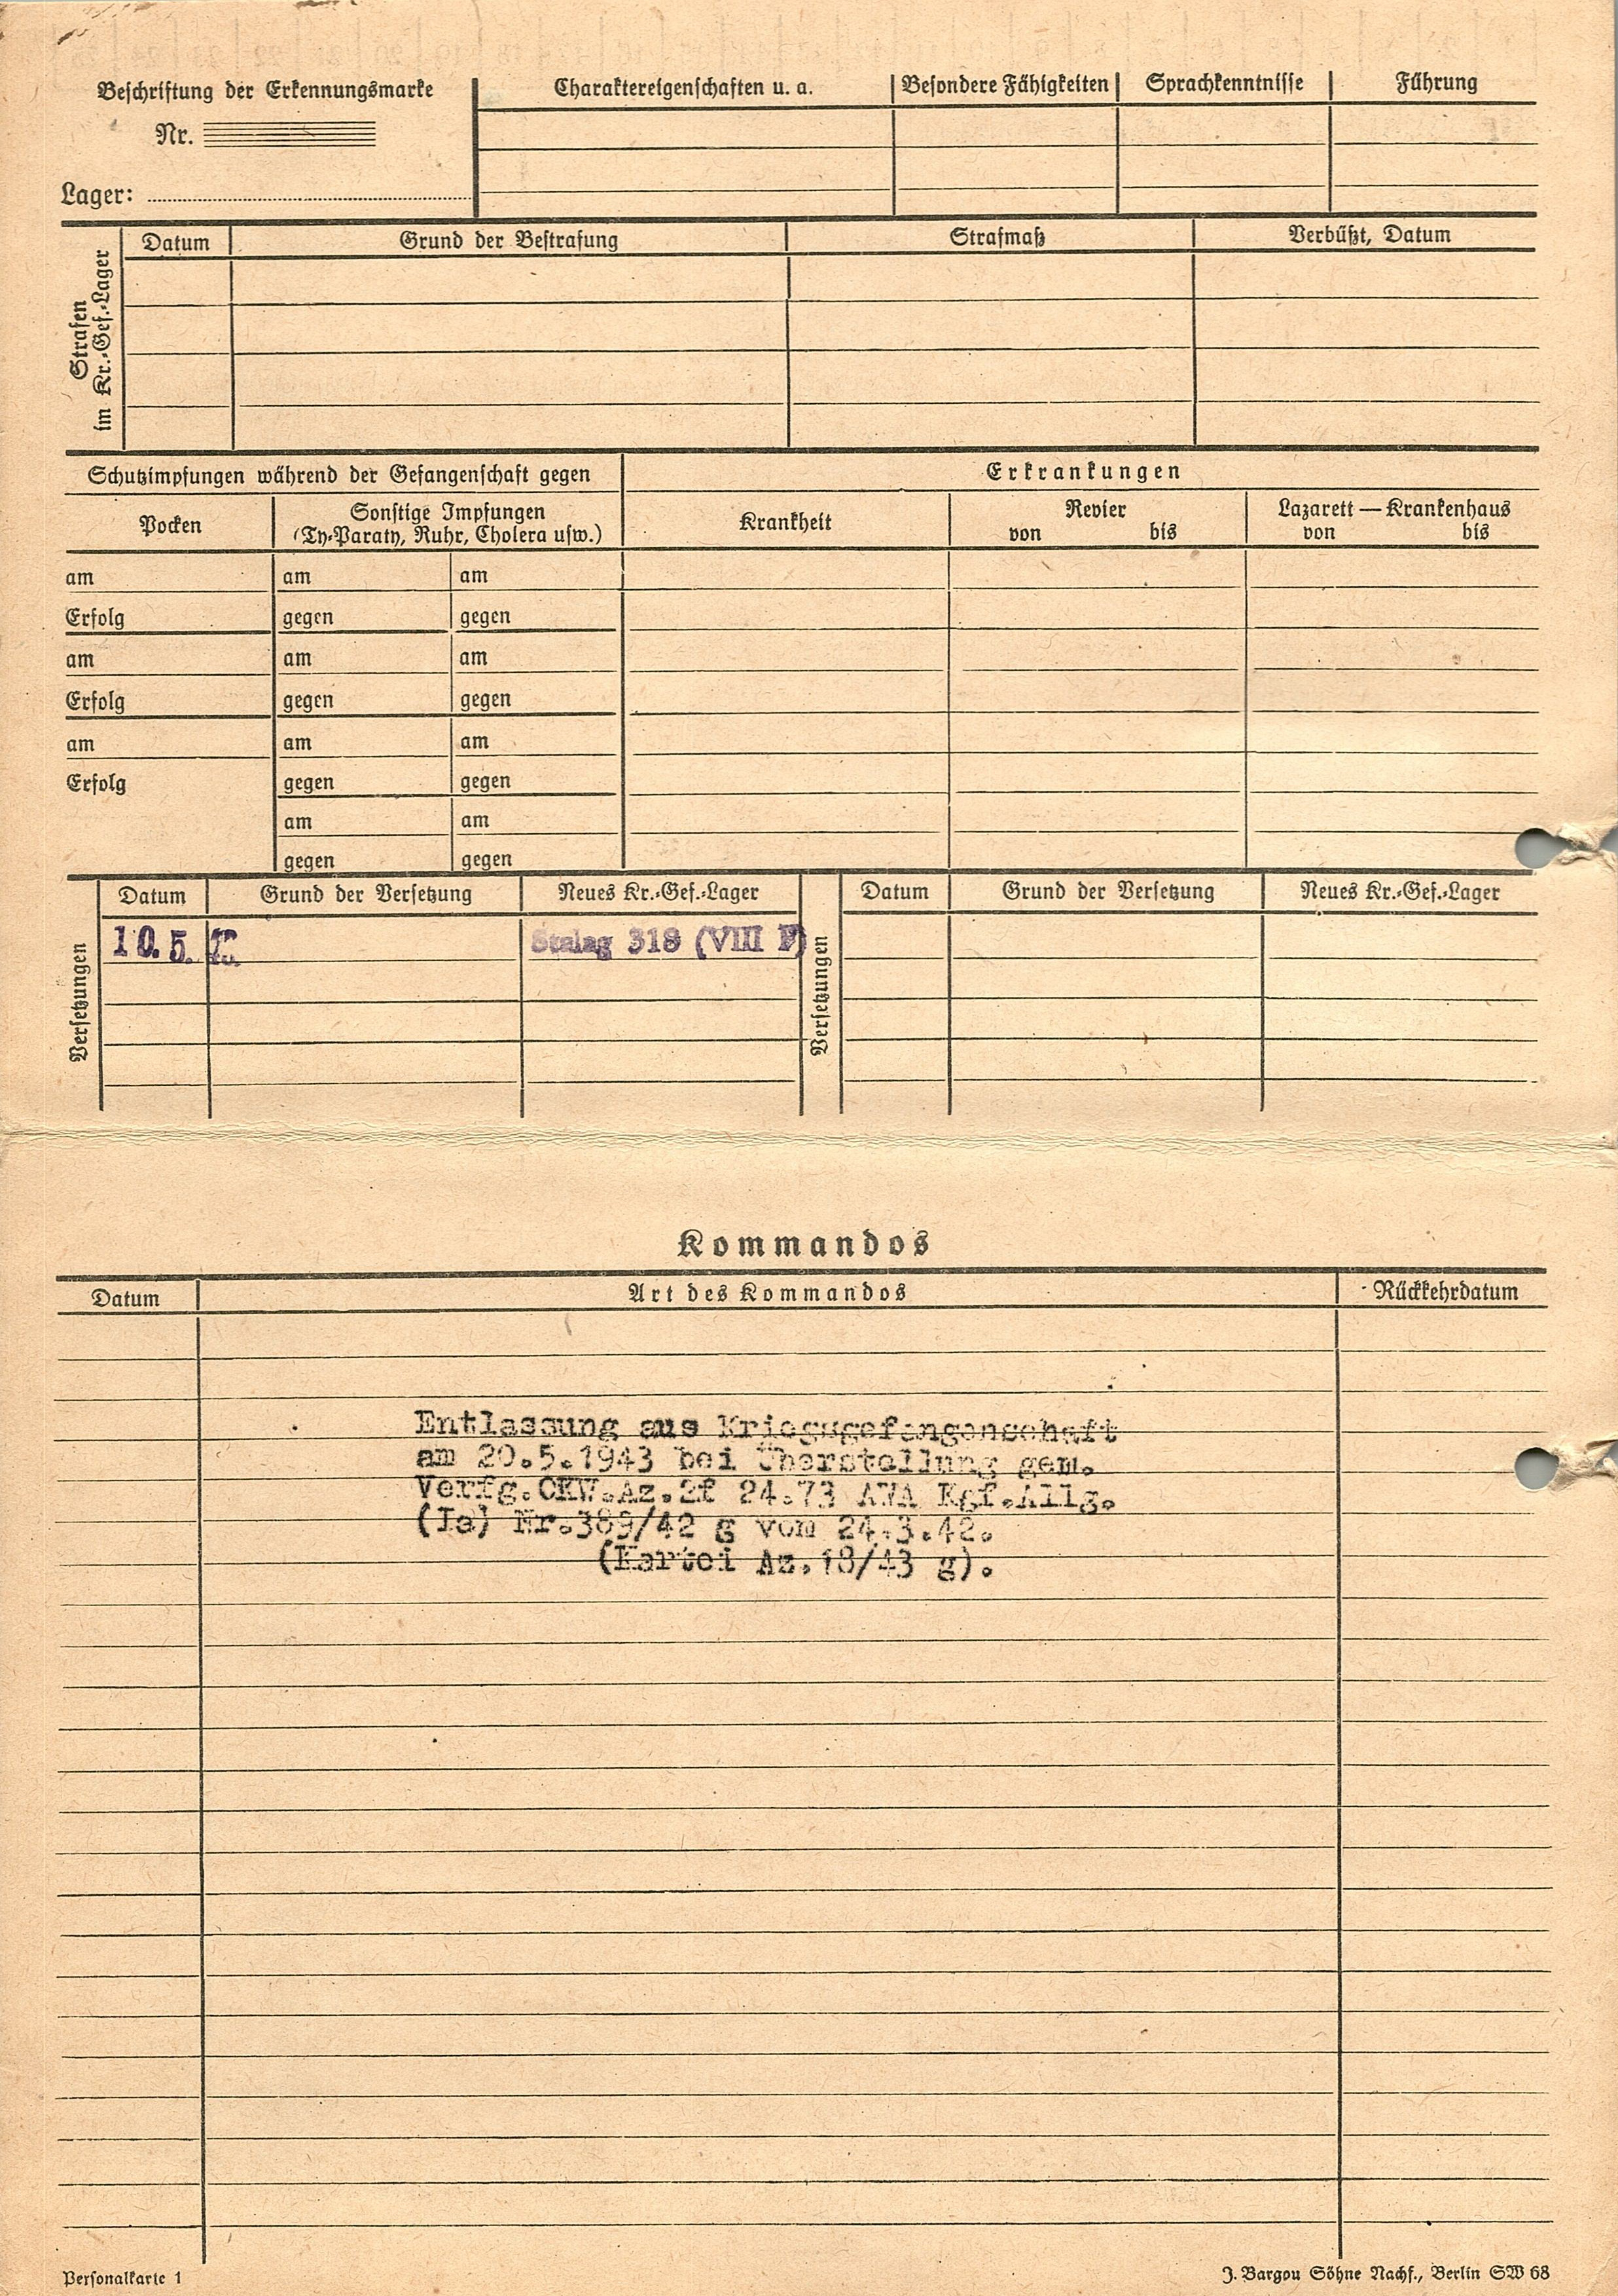 Beschriftung der Erkennungsmarke
Nr.
Lager:
Charaktereigenschaften u. a.
Besondere Fähigkeiten
Sprachkenntnisse
Führung
Strafen
im Kr.-Gef.-Lager
Datum
Grund der Bestrafung
Strafmaß
Verbüßt, Datum
Schutzimpfungen während der Gefangenschaft gegen
Erkrankungen
Pocken
Sonstige Impfungen
(Ty-Paraty, Ruhr, Cholera usw.)
Krankheit
Revier
von bis
Lazarett — Krankenhaus
von bis
am am am
Erfolg gegen gegen
am am am
Erfolg gegen gegen
am am am
Erfolg gegen gegen
am am
gegen gegen
Versetzungen
Datum Grund der Versetzung Neues Kr.-Gef.-Lager
10. 5. Stalag 318 (VIII F)
Versetzungen
Datum Grund der Versetzung Neues Kr.-Gef.-Lager
Kommandos
Datum Art des Kommandos Rückkehrdatum
Entlassung aus Kriegsgefangenschaft
am 20.5.1943 bei Überstellung gem.
Verfg.OKW.Az.2f 24.73 AWA Kgf.Allg.
(Ia) Nr.389/42 g vom 24.3.42.
(Kartei Az.18/43 g).
Personalkarte 1
J. Bargou Söhne Nachf., Berlin SW 68